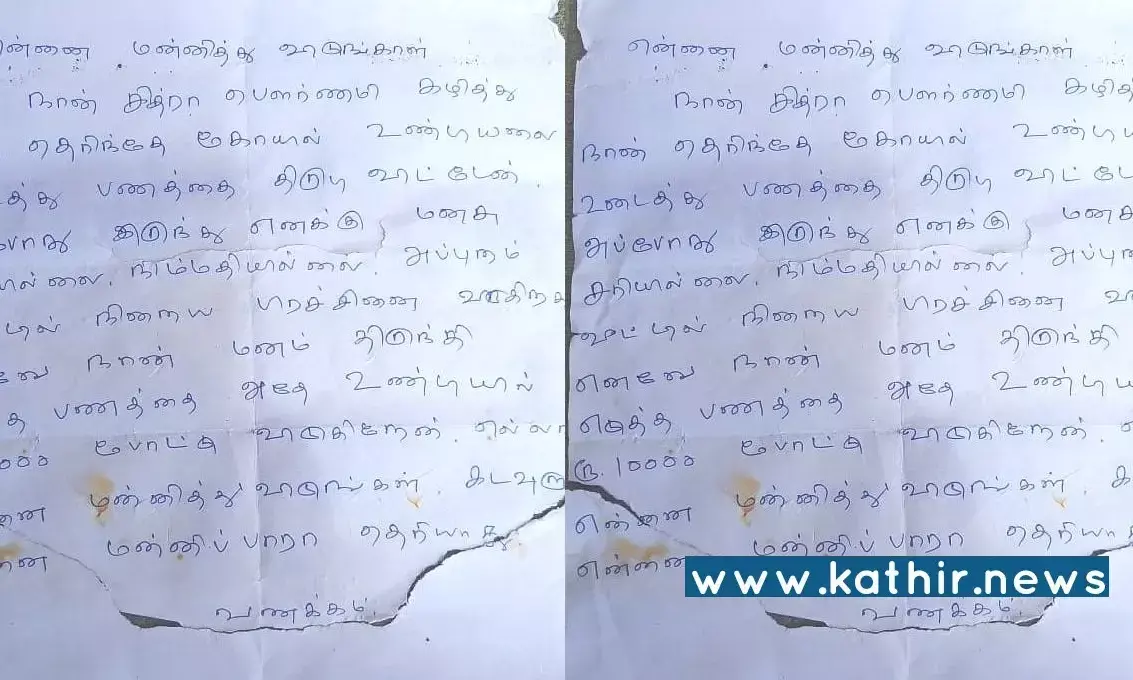 ன்னை மன்னித்து விடுங்கள்
நான் சித்ரா பௌர்ணமி கழித்து
தெரிந்தே கோயில் உண்டியலை
த்து பணத்தை திருடி விட்டேன்.
போது இருந்து எனக்கு மனசு
யில்லை. நிம்மதியில்லை. அப்புறம்
டில் நிறைய பிரச்சினை வருகிறது
வே நான் மனம் திருந்தி
த பணத்தை அதே உண்டியில்
0000 போட்டு விடுகிறேன். எல்லா
னை மன்னித்து விடுங்கள். கடவுளு
னை மன்னிப்பாரா தெரியாது.
வணக்கம்.
என்னை மன்னித்து விடுங்கள்
நான் சித்ரா பௌர்ணமி கழித்
நான் தெரிந்தே கோயில் உண்டிய
உடைத்து பணத்தை திருடி விட்டே
அப்போது இருந்து எனக்கு மனசு
சரியில்லை. நிம்மதியில்லை. அப்புற
வீட்டில் நிறைய பிரச்சினை வ
எனவே நான் மனம் திருந்தி
எடுத்த பணத்தை அதே உண்டிய
ரூ. 10000 போட்டு விடுகிறேன். எ
என்னை மன்னித்து விடுங்கள். க
என்னை மன்னிப்பாரா தெரியாது
www.kathir.news
வணக்கம்.